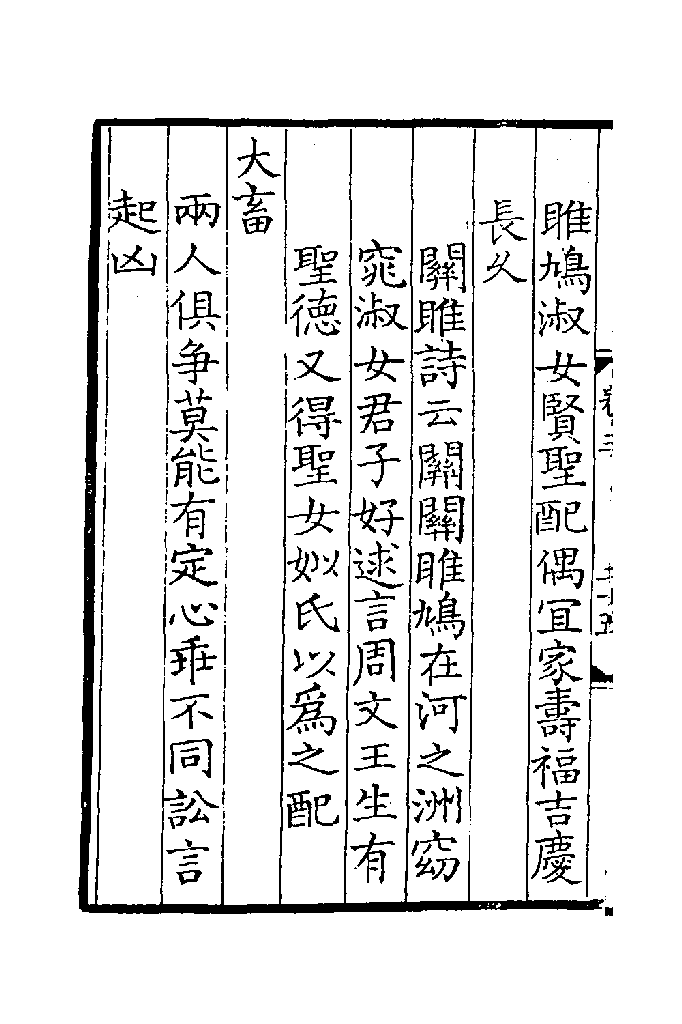 雎鳩淑女賢聖配偶宜家壽福吉慶
長久
關雎詩云關關雎鳩在河之洲窈
窕淑女君子好逑言周文王生有
聖德又得聖女姒氏以爲之配
大畜
兩人俱爭莫能有定心乖不同訟言
起凶